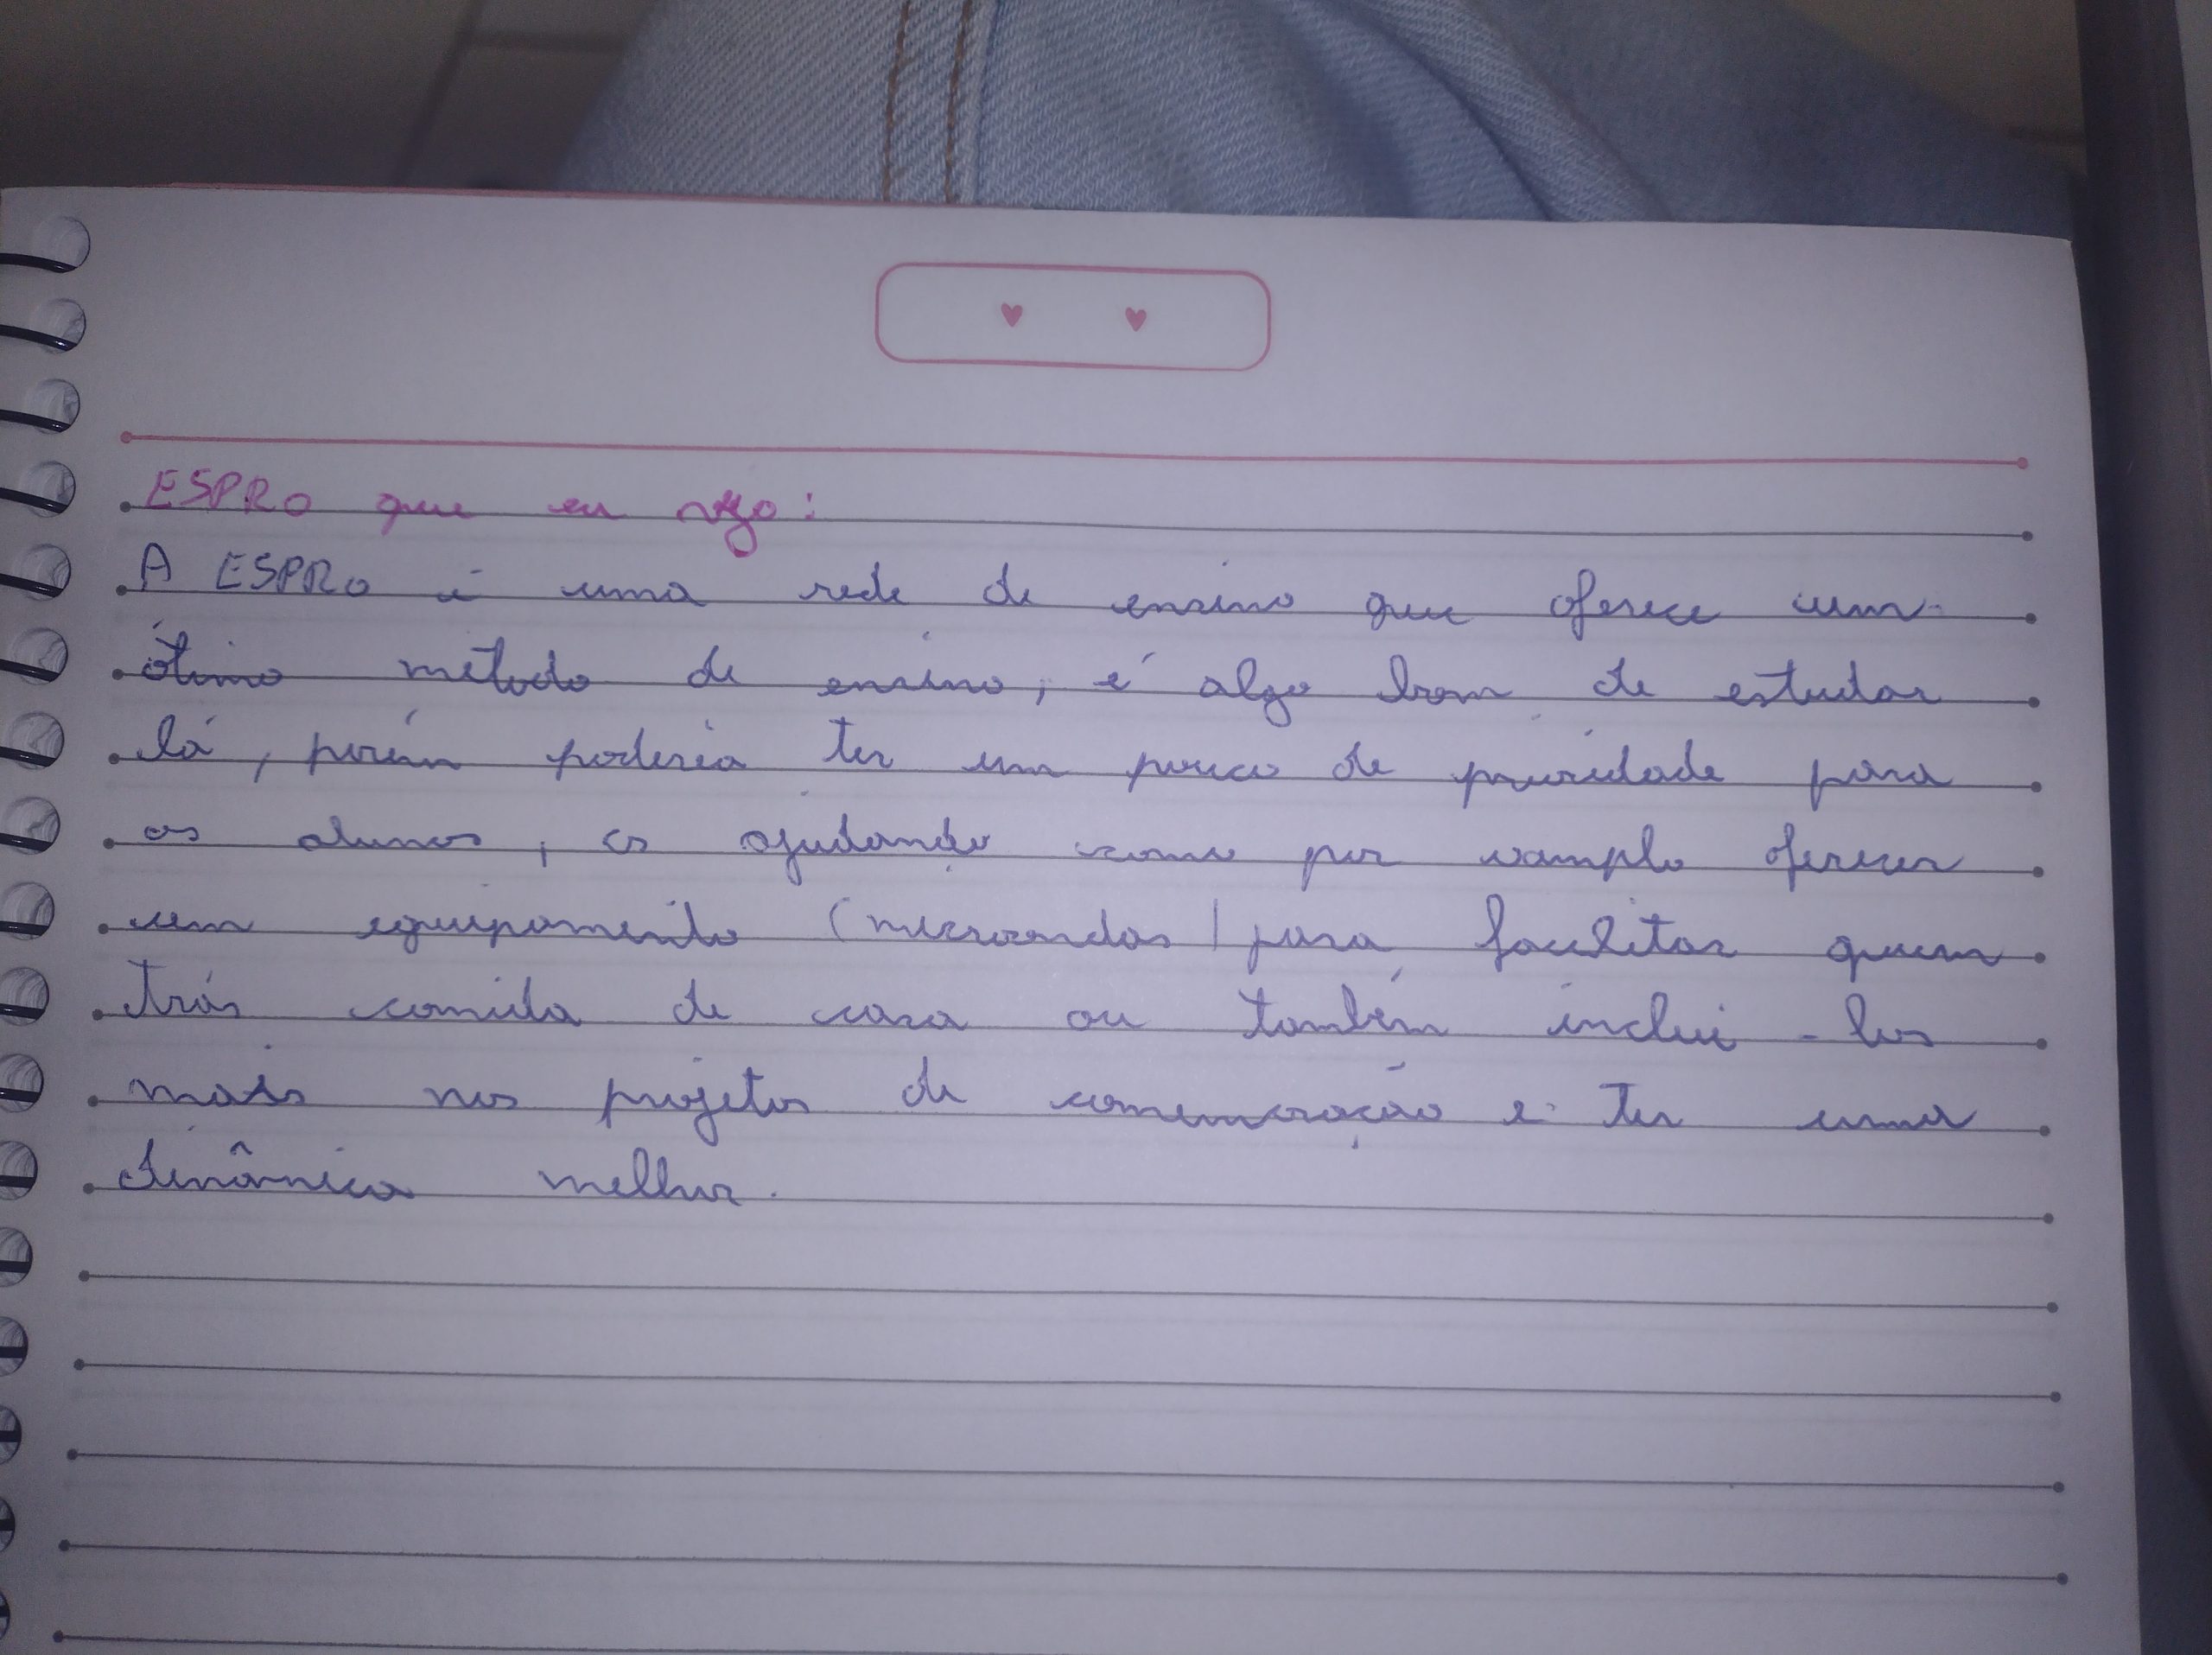 ESPRO que eu vejo:
A ESPRO é uma rede de ensino que oferece um
ótimo método de ensino, é algo bom de estudar
lá, porém poderia ter um pouco de prioridade para
os alunos, os ajudando como por exemplo oferecer
um equipamento (microondas) para facilitar quem
trás comida de casa ou também inclui-los
mais nos projetos de comemoração e ter uma
dinâmica melhor.